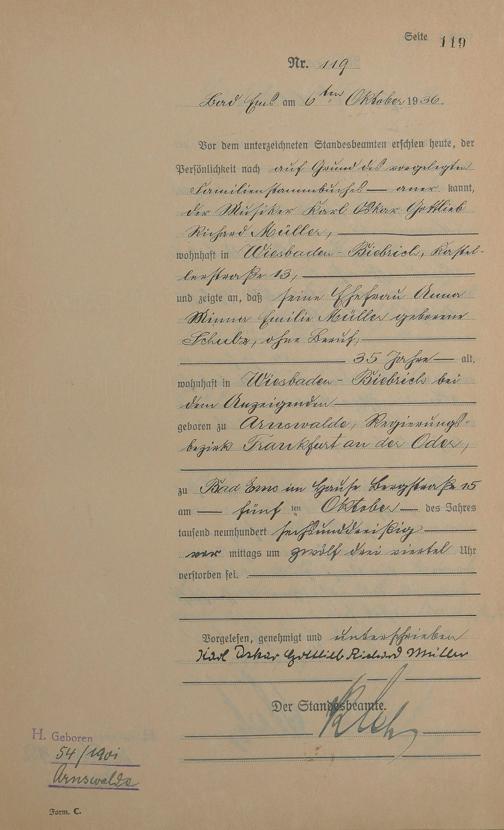 Seite 119
Nr. 119
Bad Ems am 6ten Oktober 1936.
Vor dem unterzeichneten Standesbeamten erschien heute, der
Persönlichkeit nach auf Grund des vorgelegten
Familienstammbuches — aner kannt,
der Musiker Karl Oskar Gottlieb
Richard Müller,
wohnhaft in Wiesbaden-Biebrich, Kastel-
lerstraße 13,
und zeigte an, daß seine Ehefrau Anna
Minna Emilie Müller geborene
Schulz, ohne Beruf,
35 Jahre — alt,
wohnhaft in Wiesbaden-Biebrich bei
dem Anzeigenden
geboren zu Arnswalde, Regierungs-
bezirk Frankfurt an der Oder,
zu Bad Ems im Hause Bergstraße 15
am — fünften Oktober — des Jahres
tausend neunhundert sechsunddreißig
vor mittags um zwölf drei viertel Uhr
verstorben sei.
Vorgelesen, genehmigt und unterschrieben
Karl Oskar Gottlieb Richard Müller
Der Standesbeamte.
H. Geboren
54/1901
Arnswalde
Form. C.